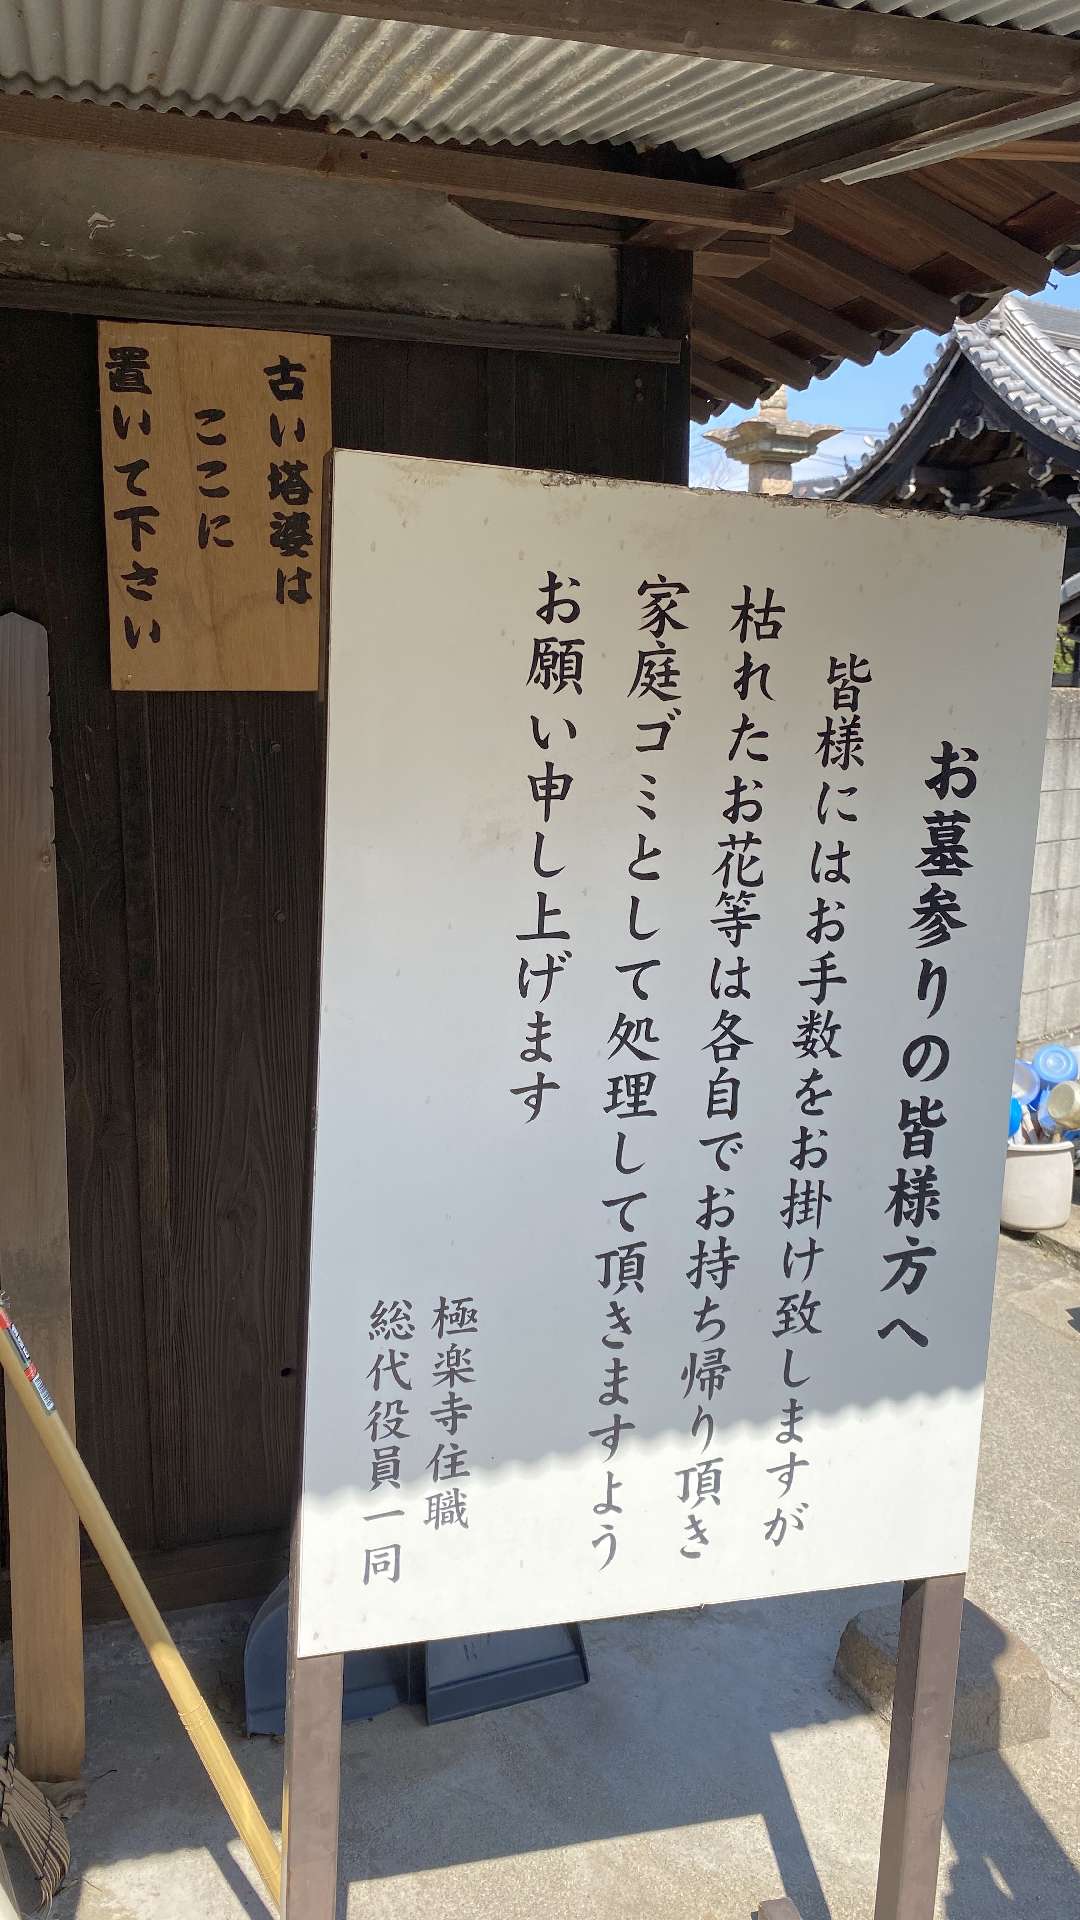 お墓参りの皆様方へ
皆様にはお手数をお掛け致しますが
枯れたお花等は各自でお持ち帰り頂き
家庭ゴミとして処理して頂きますよう
お願い申し上げます
極楽寺住職
総代役員一同
古い塔婆は
ここに
置いて下さい